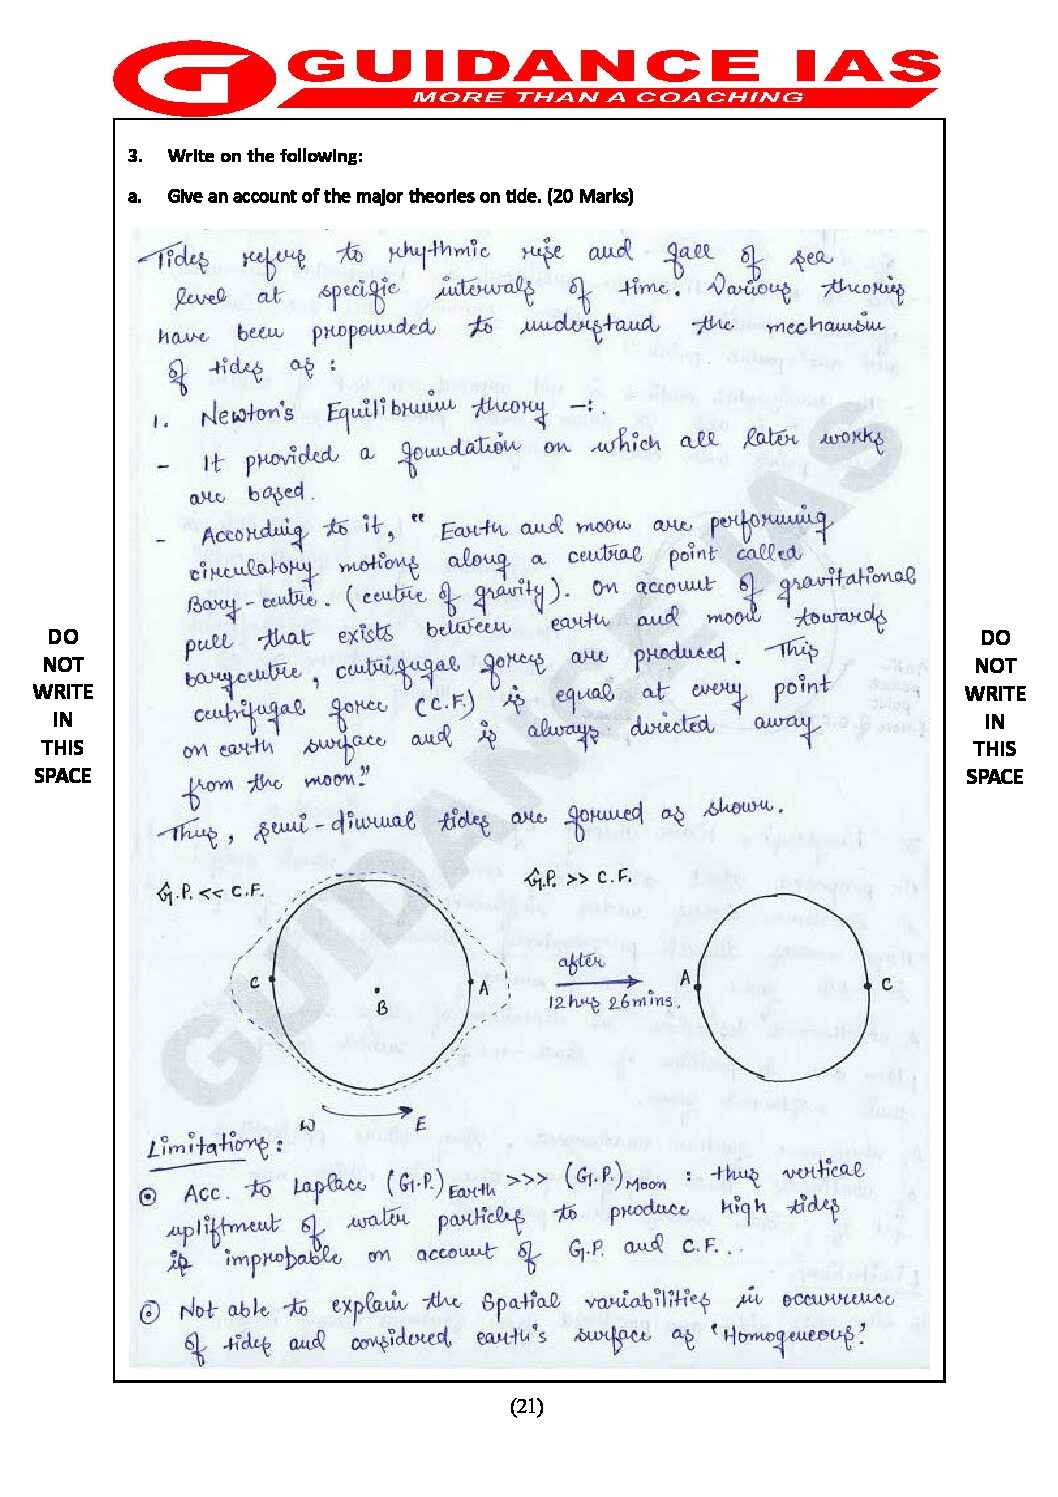 GUIDANCE IAS
MORE THAN A COACHING
3. Write on the following:
a. Give an account of the major theories on tide. (20 Marks)
Tides refers to rhythmic rise and fall of sea
level at specific intervals of time. Various theories
have been propounded to understand the mechanism
of tides as :
1. Newton's Equilibrium theory -:.
- It provided a foundation on which all later works
are based.
- According to it, " Earth and moon are performing
circulatory motions along a central point called
Bary-centre. (centre of gravity). On account of gravitational
pull that exists between earth and moon towards
barycentre, centrifugal forces are produced. This
centrifugal force (C.F.) is equal at every point
on earth surface and is always directed away
from the moon."
Thus, semi-diurnal tides are formed as shown.
G.P. << C.F.
G.P. >> C.F.
C
B
A
after
12 hrs 26 mins.
A
C
W
E
Limitations :
Acc. to Laplace (G.P.)Earth >>> (G.P.)Moon : thus vertical
upliftment of water particles to produce high tides
is improbable on account of G.P. and C.F...
Not able to explain the Spatial variabilities in occurrence
of tides and considered earth's surface as 'Homogeneous'.
DO
NOT
WRITE
IN
THIS
SPACE
DO
NOT
WRITE
IN
THIS
SPACE
GUIDANCE IAS
(21)